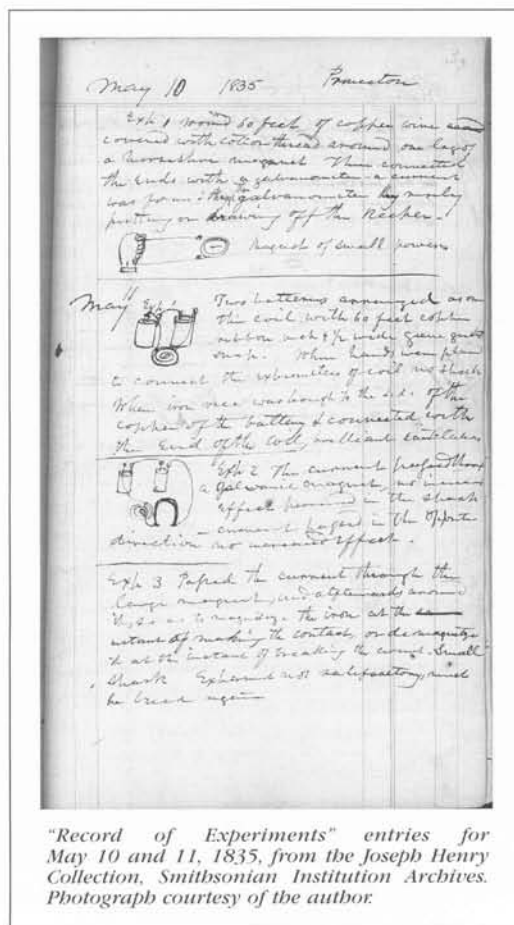 May 10 1835 Princeton
Exp 1 wound 60 feet of copper wire
covered with cotton thread around one leg of
a horse shoe magnet Then connected
the ends with a galvanometer a current
was the galvanometer by merely
putting on drawing off the Keeper.
magnet of small power
May 11 Exp 1 Two batteries arranged as on
this coil with 60 feet copper
ribbon inch & 1/2 wide gave
snap. When hands were
to connect the extremities of coil no shock
When iron was brought to the of the
copper of the battery & connected with
the End of the coil, brilliant
Exp 2 The current passed thro
a galvanic magnet, no increased
effect in the shock
current passed in the opposite
direction no increased effect.
Exp 3 Passed the current through the
large magnet, and afterwards around
it, so as to magnetize the iron at the
instant of making the contact, or demagnetize
it at the instant of breaking the small
shock Experiment not satisfactory, must
be tried again
"Record of Experiments" entries for
May 10 and 11, 1835, from the Joseph Henry
Collection, Smithsonian Institution Archives.
Photograph courtesy of the author.